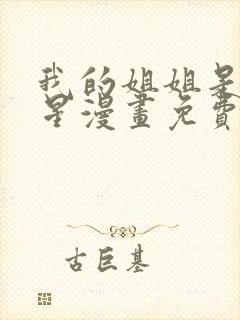 我的姐姐是
星漫畫免費
古巨基